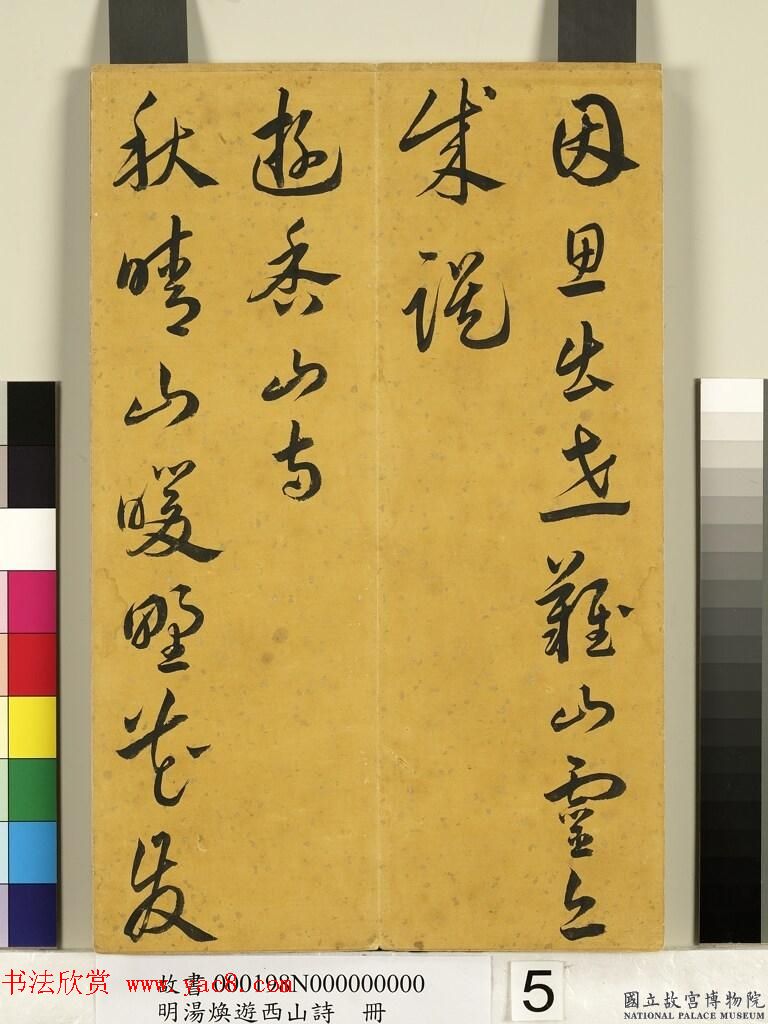 因思出世難山靈
成
遊香山寺
秋晴山暖野花發
书法欣赏 www.yac8.com
故書 000198N000000000
明湯煥遊西山詩 冊
5
國立故宮博物院
NATIONAL PALACE MUSEUM